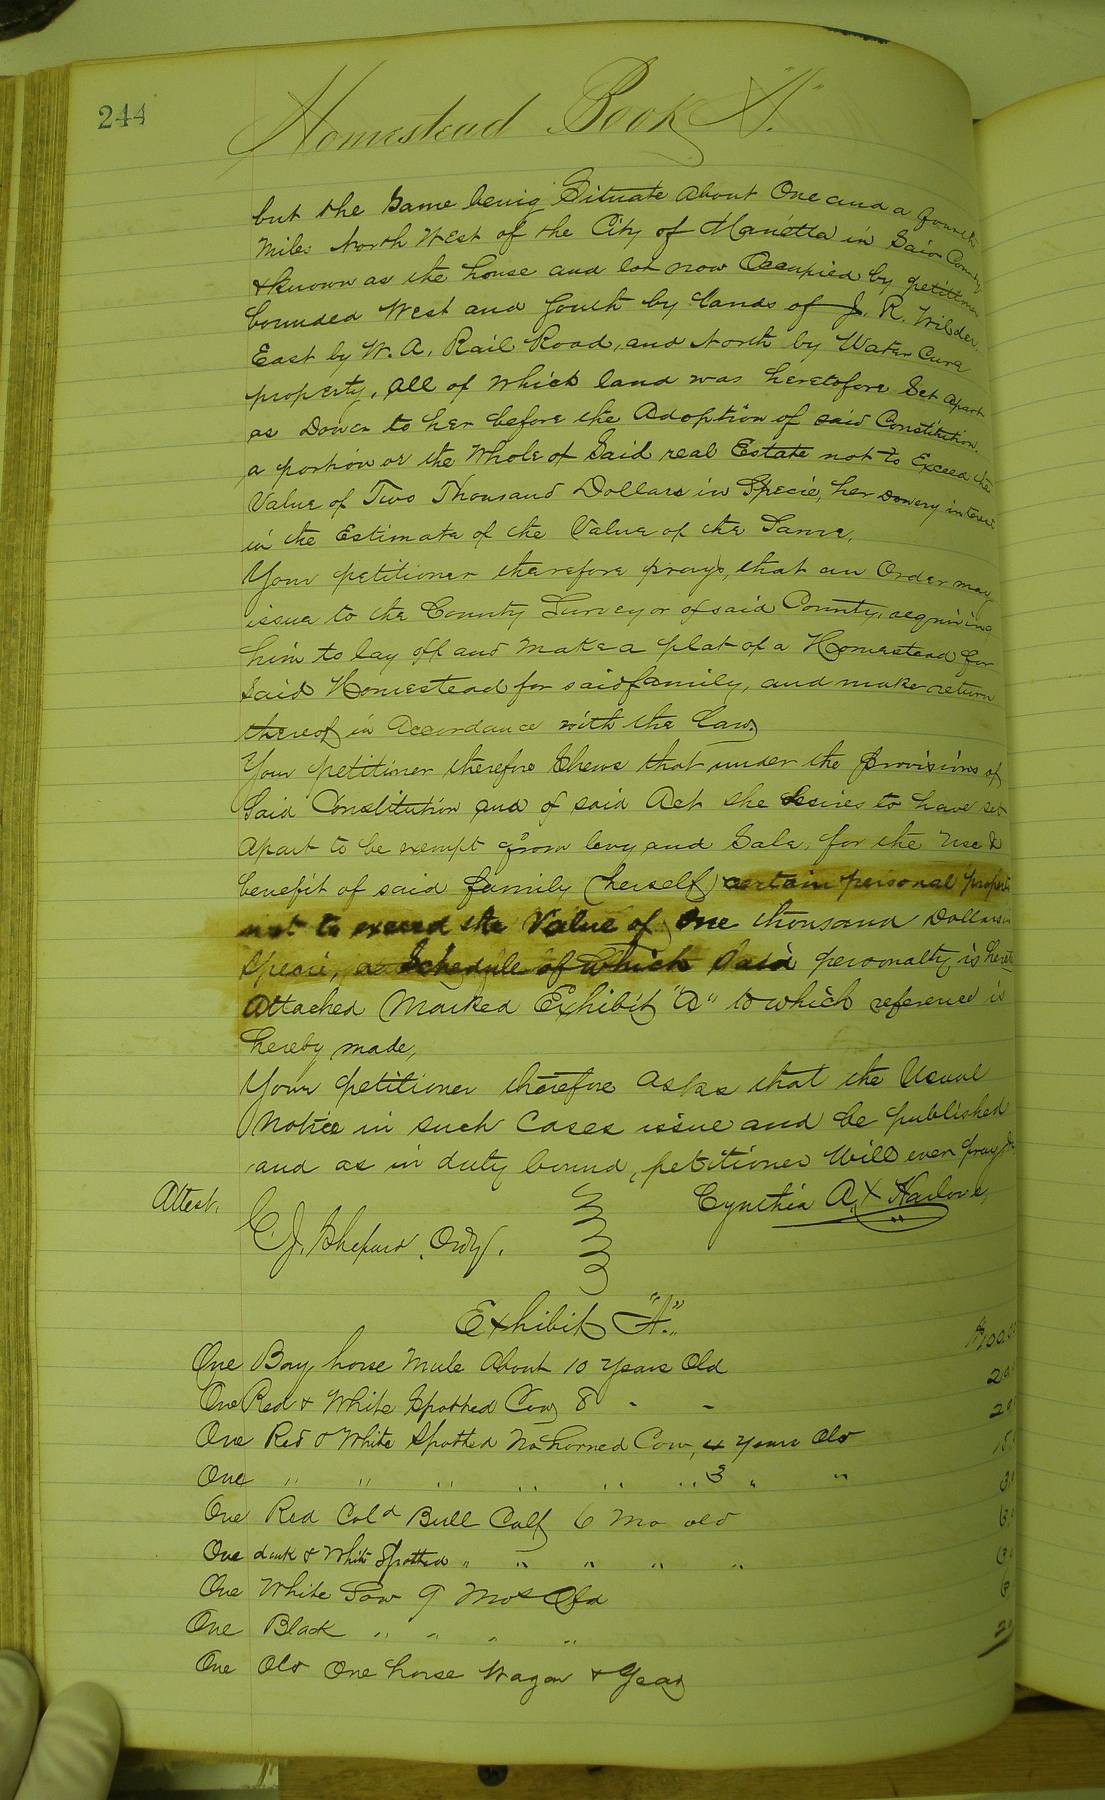 244
Homestead Book "A."
but the Same being Situate about One and a fourth
Miles North West of the City of Marietta in Said County
& known as the house and lot now Occupied by petitioner
bounded West and South by lands of J. R. Wilder,
East by W. A. Rail Road, and North by Water Cure
property, All of which land was heretofore Set apart
as Dower to her before the Adoption of said Constitution.
a portion or the Whole of Said real Estate not to Exceed the
Value of Two Thousand Dollars in Specie, her Dowery interest
in the Estimate of the Value of the Same.
Your petitioner therefore prays, that an Order may
issue to the County Surveyor of said County, requiring
him to lay off and make a plat of a Homestead for
Said Homestead for said family, and make return
thereof in Accordance with the law.
Your petitioner therefore Shews that under the provisions of
Said Constitution and of said Act she desires to have set
Apart to be exempt from levy and Sale, for the Use &
benefit of said family (herself) certain personal property
not to exceed the Value of One thousand Dollars in
Specie, a Schedule of which Said personalty is hereto
Attached Marked Exhibit "A" to which reference is
hereby made,
Your petitioner therefore Asks that the Usual
Notice in such Cases issue and be published
and as in duty bound, petitioner Will ever pray &
Attest, Cynthia A. X
C. J. Shepard, Ordy.
Exhibit "A."
One Bay horse Mule About 10 Years Old
One Red & White Spotted Cow 8 " "
One Red & White Spotted No horned Cow, 4 years Old
One " " " " " " 3 " "
One Red Cold Bull Calf 6 Mo old
One dark & White Spotted " " " " "
One White Sow 9 Mos Old
One Black " " " "
One Old One horse Wagon & Gear